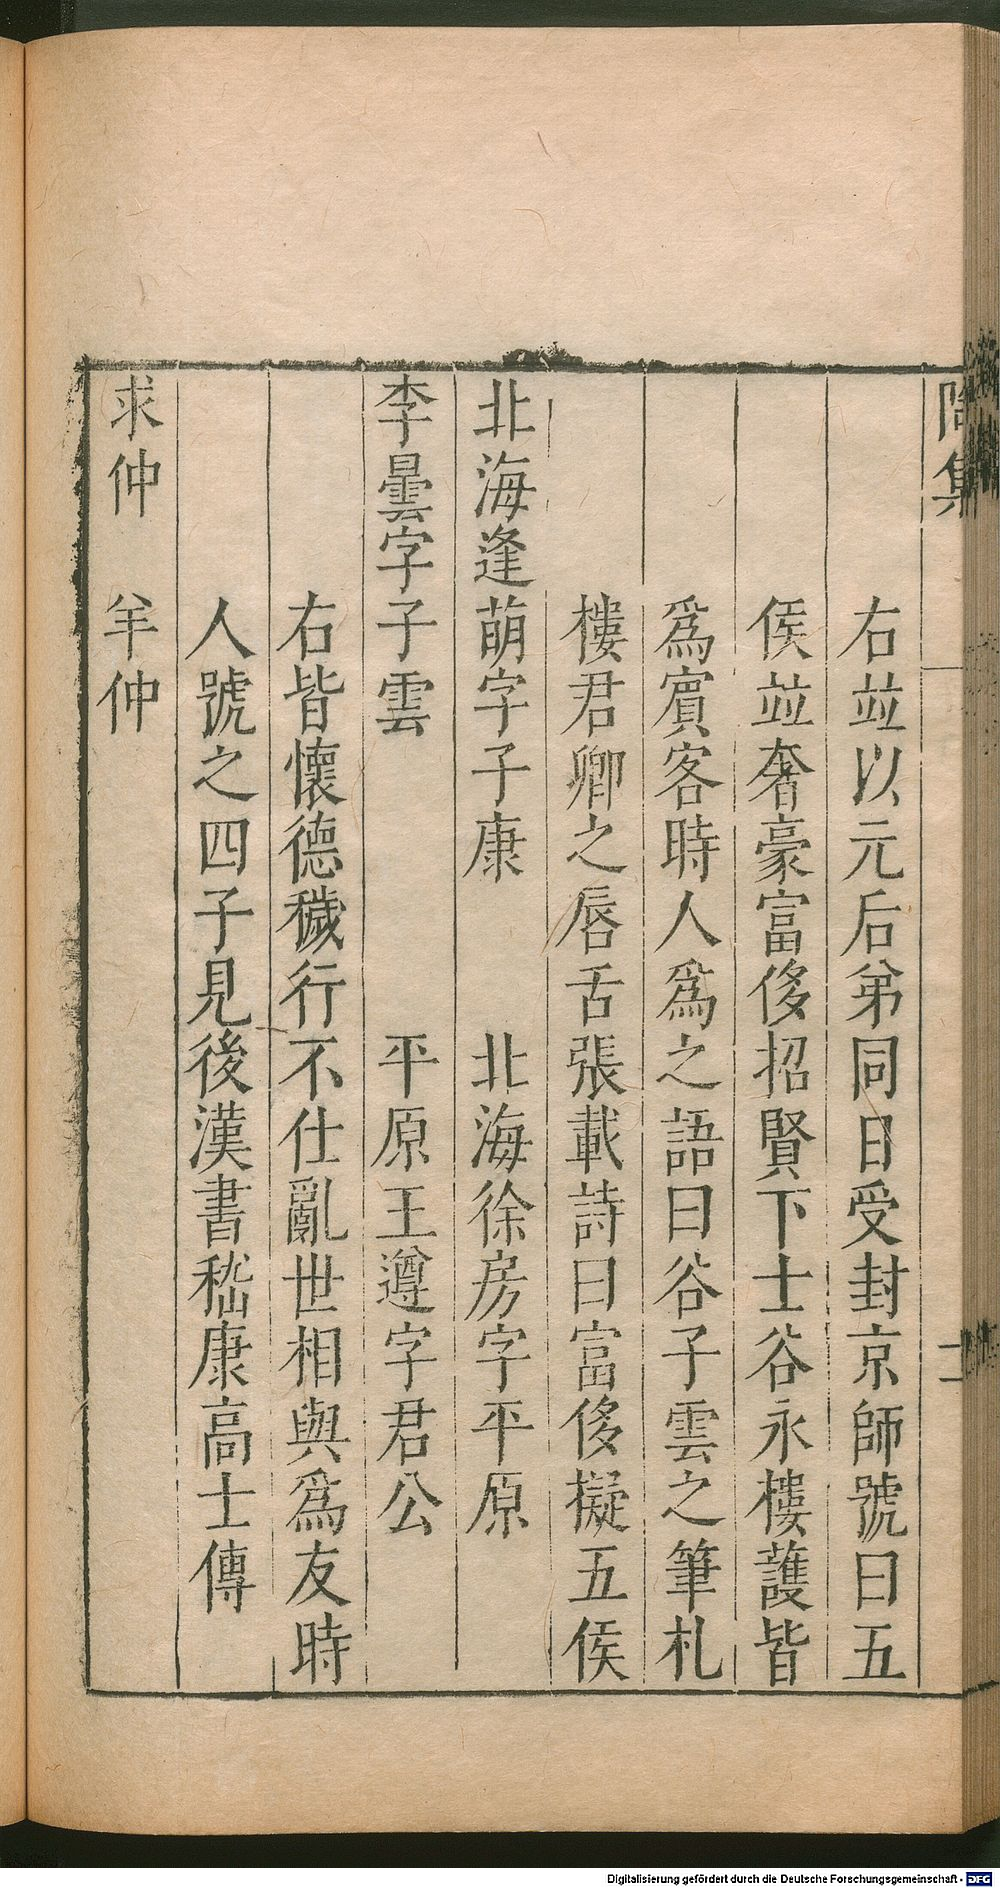 陶集
二
右並以元后弟同日受封京師號曰五
侯並奢豪富侈招賢下士谷永樓護皆
爲賓客時人爲之語曰谷子雲之筆札
樓君卿之唇舌張載詩曰富侈擬五侯
北海逢萌字子康　北海徐房字平原
李曇字子雲　平原王遵字君公
右皆懷德穢行不仕亂世相與爲友時
人號之四子見後漢書嵇康高士傳
求仲　羊仲
Digitalisierung gefördert durch die Deutsche Forschungsgemeinschaft - DFG